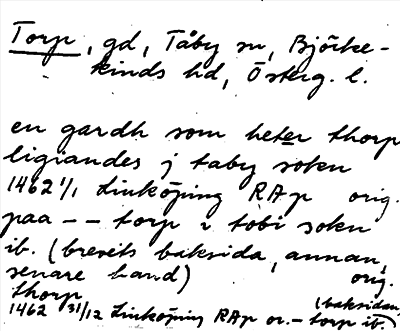 Torp, gd, Tåby sn, Björke-
kinds hd, Österg. l.
en gardh som heter thorp
ligiandes j taby soken
1462 1/1 Linköping RAp orig.
paa -- torp i tobi soken
ib. (brevets baksida, annan,
senare hand) orig.
thorp (baksidan,
1462 31/12 Linköping RAp or. - torp ib.)